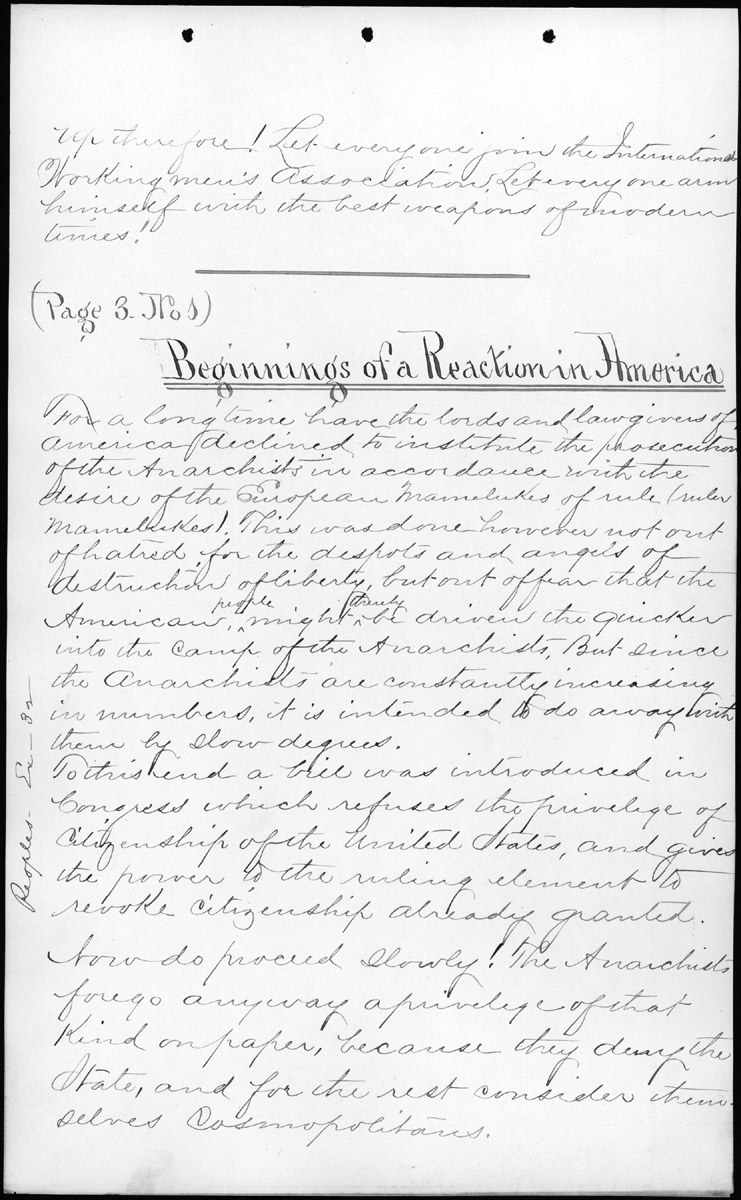 Up therefore! Let every one join the International
Workingmen's Association, Let every one arm
himself with the best weapons of modern
times!
(Page 3. No 1)
Beginnings of a Reaction in America
For a long time have the lords and lawgivers of
America declined to institute the prosecution
of the Anarchists in accordance with the
desire of the European Mamelukes of rule (ruler
Mamelukes). This was done however not out
of hatred for the despots and angels of
destruction of liberty, but out of fear that the
American, people might thereby be driven the quicker
into the camp of the Anarchists, But since
the Anarchists are constantly increasing
in numbers, it is intended to do away with
them by slow degrees.
To this end a bill was introduced in
Congress which refuses the privelege of
Citizenship of the United States, and gives
the power to the ruling element to
revoke citizenship already granted.
Now do proceed slowly! The Anarchists
forego anyway a privelege of that
Kind on paper, because they deny the
State, and for the rest consider them-
selves Cosmopolitans.
Peoples Ex - 32